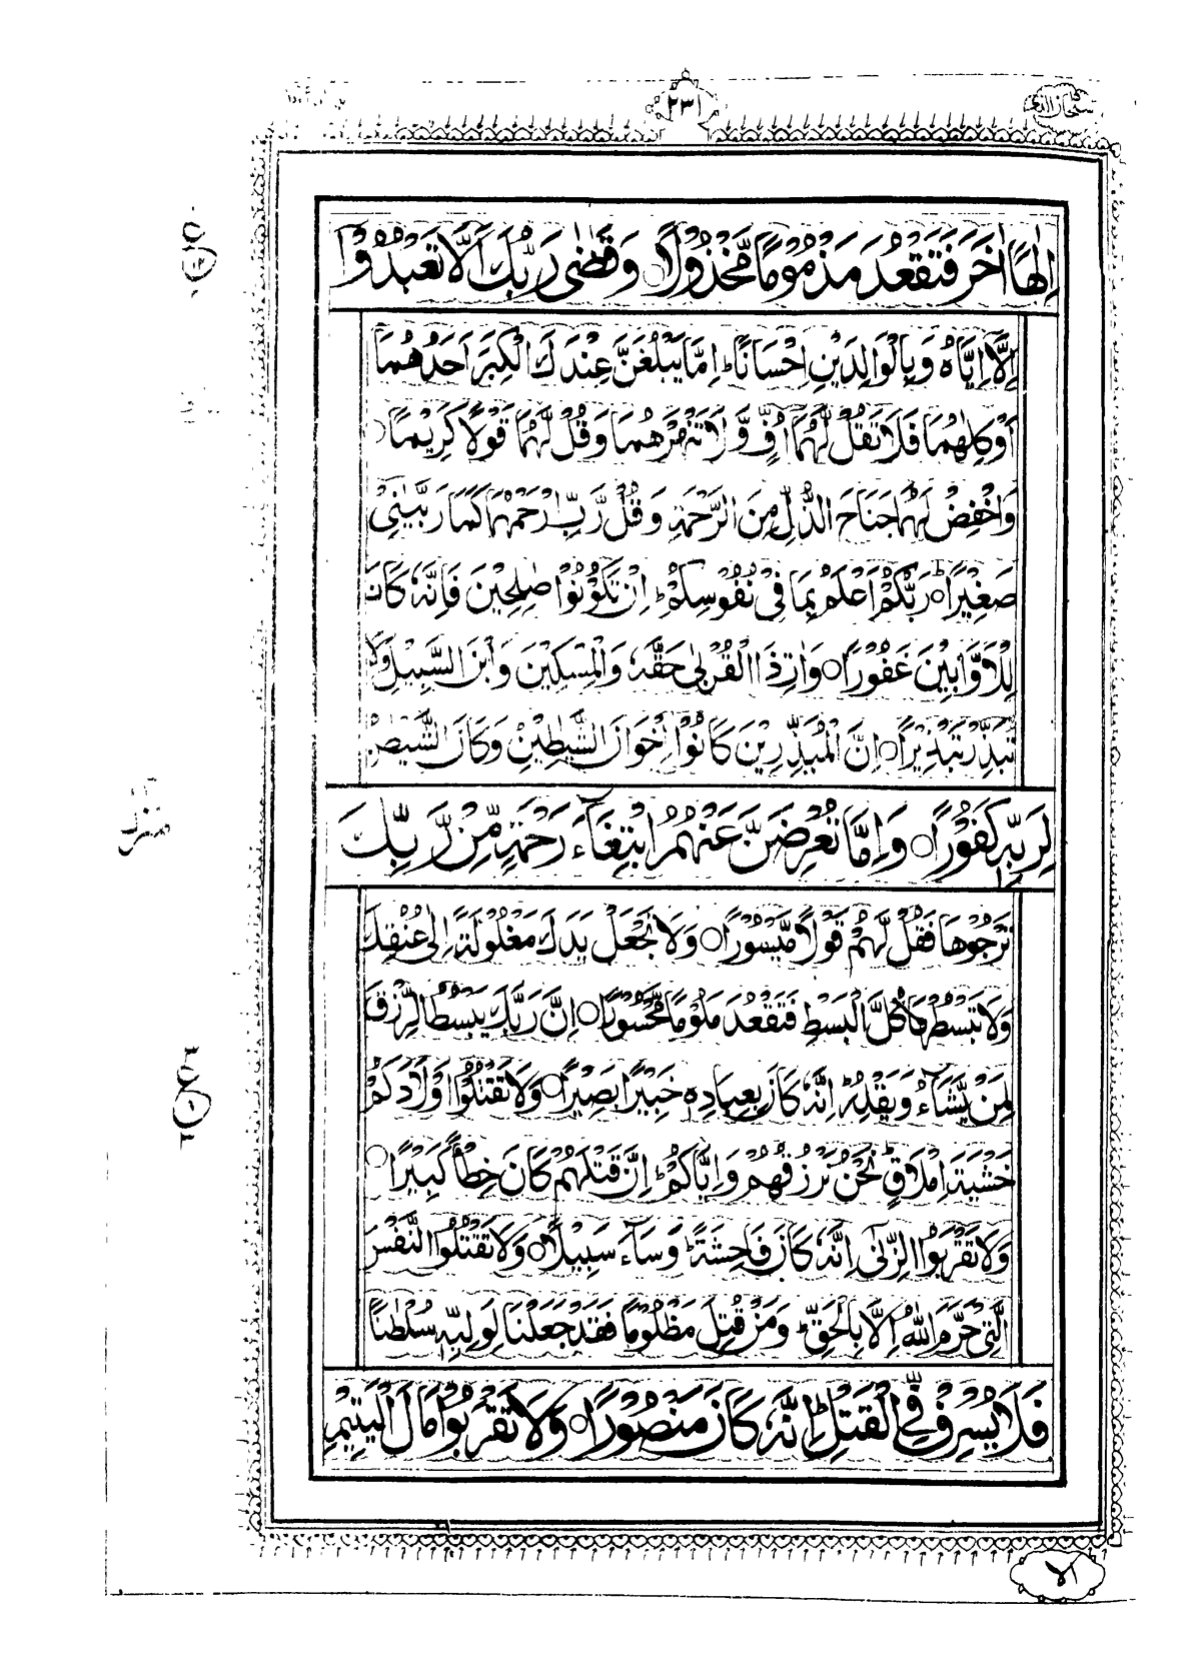 سبحان الذی
٢٣١
اِلٰهًا اٰخَرَ فَتَقْعُدَ مَذْمُوْمًا مَّخْذُوْلًا ○ وَقَضٰى رَبُّكَ اَلَّا تَعْبُدُوْٓا
اِلَّآ اِيَّاهُ وَبِالْوَالِدَيْنِ اِحْسَانًا ؕ اِمَّا يَبْلُغَنَّ عِنْدَكَ الْكِبَرَ اَحَدُهُمَآ
اَوْ كِلٰهُمَا فَلَا تَقُلْ لَّهُمَآ اُفٍّ وَّلَا تَنْهَرْهُمَا وَقُلْ لَّهُمَا قَوْلًا كَرِيْمًا ○
وَاخْفِضْ لَهُمَا جَنَاحَ الذُّلِّ مِنَ الرَّحْمَةِ وَقُلْ رَّبِّ ارْحَمْهُمَا كَمَا رَبَّيٰنِيْ
صَغِيْرًا ○ رَبُّكُمْ اَعْلَمُ بِمَا فِيْ نُفُوْسِكُمْ ؕ اِنْ تَكُوْنُوْا صٰلِحِيْنَ فَاِنَّهٗ كَانَ
لِلْاَوَّابِيْنَ غَفُوْرًا ○ وَاٰتِ ذَا الْقُرْبٰى حَقَّهٗ وَالْمِسْكِيْنَ وَابْنَ السَّبِيْلِ وَلَا
تُبَذِّرْ تَبْذِيْرًا ○ اِنَّ الْمُبَذِّرِيْنَ كَانُوْٓا اِخْوَانَ الشَّيٰطِيْنِ وَكَانَ الشَّيْطٰنُ
لِرَبِّهٖ كَفُوْرًا ○ وَاِمَّا تُعْرِضَنَّ عَنْهُمُ ابْتِغَآءَ رَحْمَةٍ مِّنْ رَّبِّكَ
تَرْجُوْهَا فَقُلْ لَّهُمْ قَوْلًا مَّيْسُوْرًا ○ وَلَا تَجْعَلْ يَدَكَ مَغْلُوْلَةً اِلٰى عُنُقِكَ
وَلَا تَبْسُطْهَا كُلَّ الْبَسْطِ فَتَقْعُدَ مَلُوْمًا مَّحْسُوْرًا ○ اِنَّ رَبَّكَ يَبْسُطُ الرِّزْقَ
لِمَنْ يَّشَآءُ وَيَقْدِرُ ؕ اِنَّهٗ كَانَ بِعِبَادِهٖ خَبِيْرًا بَصِيْرًا ○ وَلَا تَقْتُلُوْٓا اَوْلَادَكُمْ
خَشْيَةَ اِمْلَاقٍ ؕ نَحْنُ نَرْزُقُهُمْ وَاِيَّاكُمْ ؕ اِنَّ قَتْلَهُمْ كَانَ خِطْاً كَبِيْرًا ○
وَلَا تَقْرَبُوا الزِّنٰٓى اِنَّهٗ كَانَ فَاحِشَةً ؕ وَسَآءَ سَبِيْلًا ○ وَلَا تَقْتُلُوا النَّفْسَ
الَّتِيْ حَرَّمَ اللّٰهُ اِلَّا بِالْحَقِّ ؕ وَمَنْ قُتِلَ مَظْلُوْمًا فَقَدْ جَعَلْنَا لِوَلِيِّهٖ سُلْطٰنًا
فَلَا يُسْرِفْ فِّي الْقَتْلِ ؕ اِنَّهٗ كَانَ مَنْصُوْرًا ○ وَلَا تَقْرَبُوْا مَالَ الْيَتِيْمِ
منزل